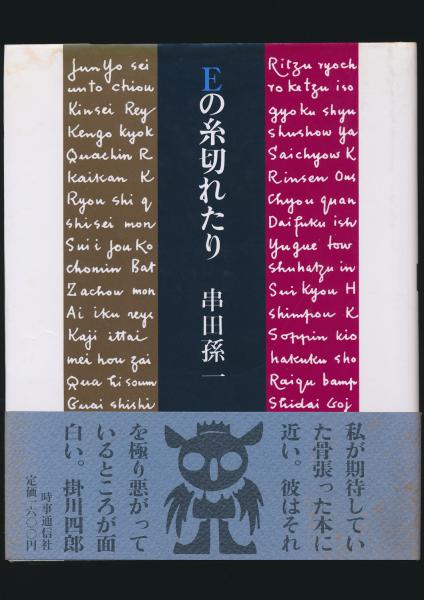 Eの糸切れたり
串田孫一
Junyo sei
unto chiou
Kinsei Rey
Kengo kyok
Quachin R
Kaikan K
Ryou shi q
shi sei mon
Sui i jou Ko
chonin Bat
Zachou mon
Ai iku reye
Kaji ittai
mei hou zai
Qua hi soum
Guai shishi
Ritzu ryoch
ro ketzu iso
gyoku shyu
shushow ya
Saichyow K
Rinsen Ons
Chyou quan
Daifuku ish
Yugue tow
shuhatzu in
Sui Kyou H
shimpou K
Soppin kio
hakuku sho
Raiqu bamp
Shidai Goj
私が期待してい
た骨張った本に
近い。彼はそれ
を極り悪がって
いるところが面
白い。掛川四郎
時事通信社
定価一六〇〇円